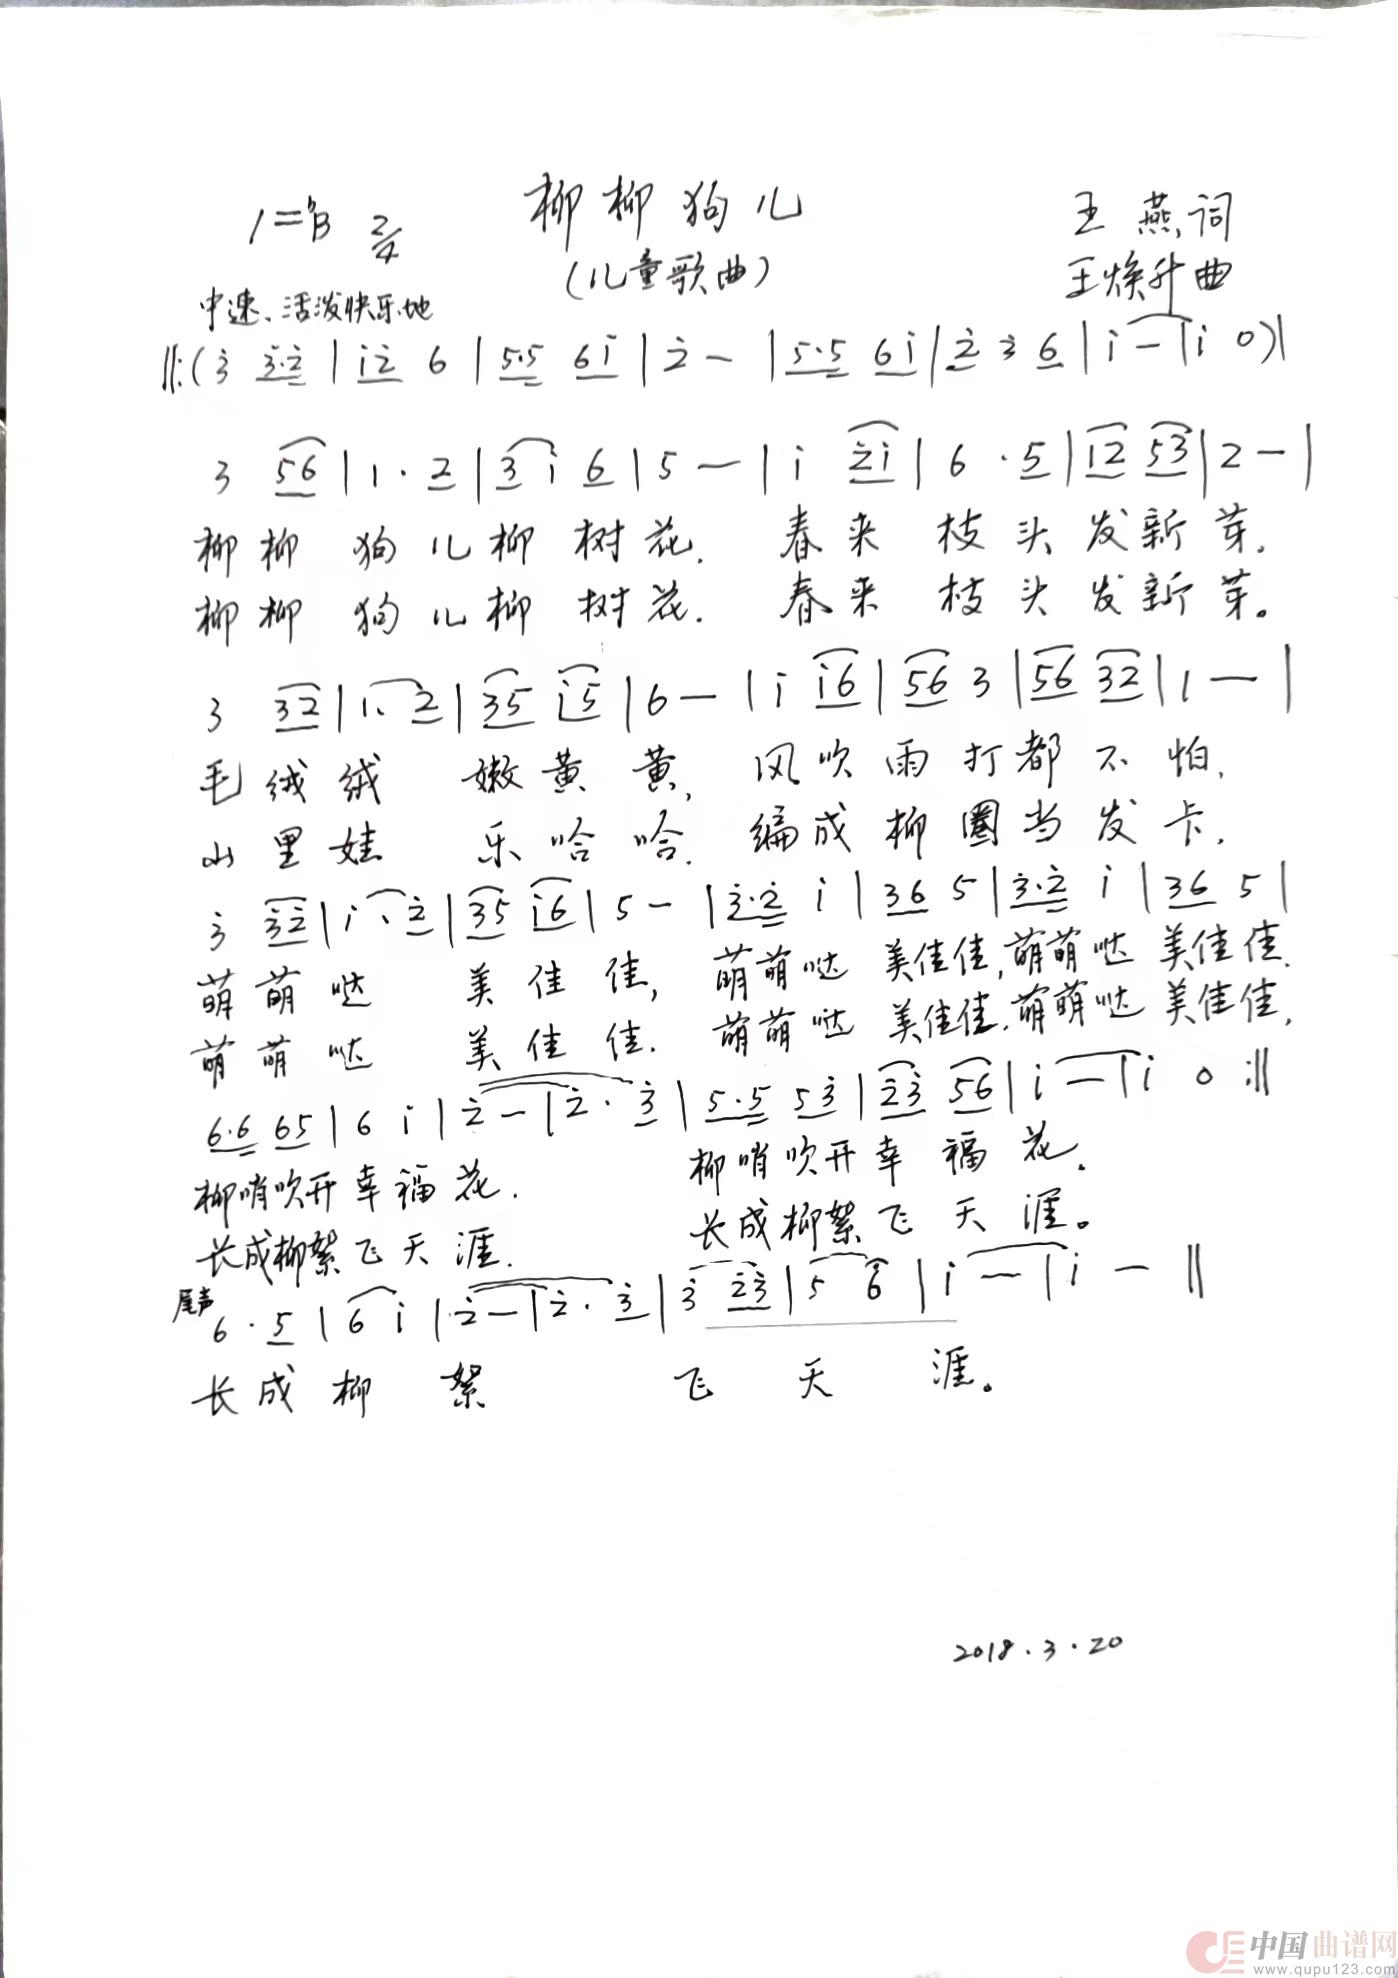 柳柳狗儿
1=♭B 2/4
(儿童歌曲)
王燕词
王焕升曲
中速、活泼快乐地
‖:(3̇ 3̇·2̇ | i2̇ 6 | 5·5 6i | 2̇ — | 5·5 6i | 2̇ 3̇ 6 | i — | i 0)|
3 56 | 1· 2 | 3 i 6 | 5 — | i 2̇i | 6 · 5 | i2 53 | 2 — |
柳柳 狗儿柳 树花. 春来 枝头发新芽.
柳柳 狗儿柳 树花. 春来 枝头发新芽。
3 32 | 1· 2 | 35 i5 | 6 — | i i6 | 56 3 | 56 32 | 1 — |
毛绒绒 嫩黄黄, 风吹雨打都不怕,
山里娃 乐哈哈. 编成柳圈当发卡,
3̇ 3̇2̇ | i· 2̇ | 35 i6 | 5 — | 3̇·2̇ i | 36 5 | 3̇·2̇ i | 36 5 |
萌萌哒 美佳佳, 萌萌哒 美佳佳,萌萌哒 美佳佳.
萌萌哒 美佳佳. 萌萌哒 美佳佳.萌萌哒 美佳佳,
6·6 65 | 6 i | 2̇ — | 2̇ · 3̇ | 5·5 53̇ | 2̇3̇ 56 | i — | i 0 :‖
柳哨吹开幸福花. 柳哨吹开幸福花.
长成柳絮飞天涯. 长成柳絮飞天涯。
尾声 6 · 5 | 6 i | 2̇ — | 2̇ · 3̇ | 3̇ 2̇3̇ | 5 6 | i — | i — ‖
长成柳絮 飞天涯。
2018.3.20
中国曲谱网
www.qupu123.com